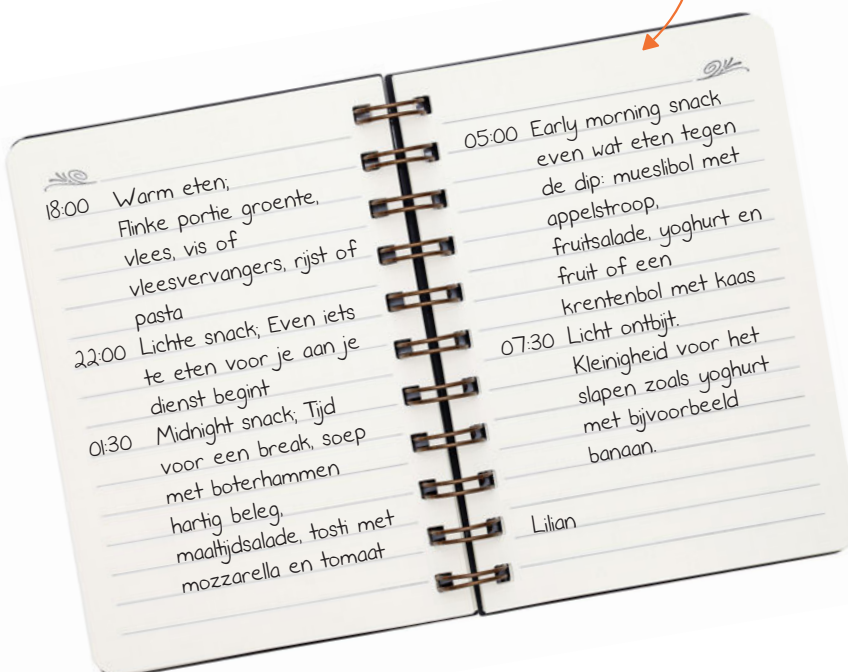 18:00 Warm eten;
Flinke portie groente,
vlees, vis of
vleesvervangers, rijst of
pasta
22:00 Lichte snack; Even iets
te eten voor je aan je
dienst begint
01:30 Midnight snack; Tijd
voor een break, soep
met boterhammen
hartig beleg,
maaltijdsalade, tosti met
mozzarella en tomaat
05:00 Early morning snack
even wat eten tegen
de dip: mueslibol met
appelstroop,
fruitsalade, yoghurt en
fruit of een
krentenbol met kaas
07:30 Licht ontbijt.
Kleinigheid voor het
slapen zoals yoghurt
met bijvoorbeeld
banaan.
Lilian